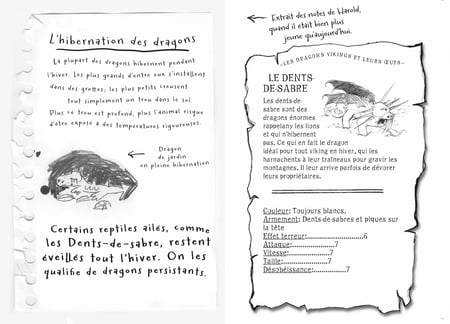 L'hibernation des dragons
La plupart des dragons hibernent pendant
l'hiver. Les plus grands d'entre eux s'installent
dans des grottes, les plus petits creusent
tout simplement un trou dans le sol.
Plus ce trou est profond, plus l'animal risque
d'être exposé à des températures rigoureuses.
Dragon
de jardin
en pleine hibernation
Certains reptiles ailés, comme
les Dents-de-sabre, restent
éveillés tout l'hiver. On les
qualifie de dragons persistants.
Extrait des notes de Harold,
quand il était bien plus
jeune qu'aujourd'hui.
LES DRAGONS VIKINGS ET LEURS ŒUFS
LE DENTS-
DE-SABRE
Les dents-de-
sabre sont des
dragons énormes
rappelany les lions
et qui n'hibernent
pas. Ce qui en fait le dragon
idéal pour tout viking en hiver, qui les
harnachents à leur traîneaux pour gravir les
montagnes. Il leur arrive parfois de dévorer
leurs propriétaires.
Couleur: Toujours blancs,
Armement: Dents de sabres et piques sur
la tête
Effet terreur:.....................6
Attaque:...............7
Vitesse:...............7
Taille:................7
Désobéissance:............7